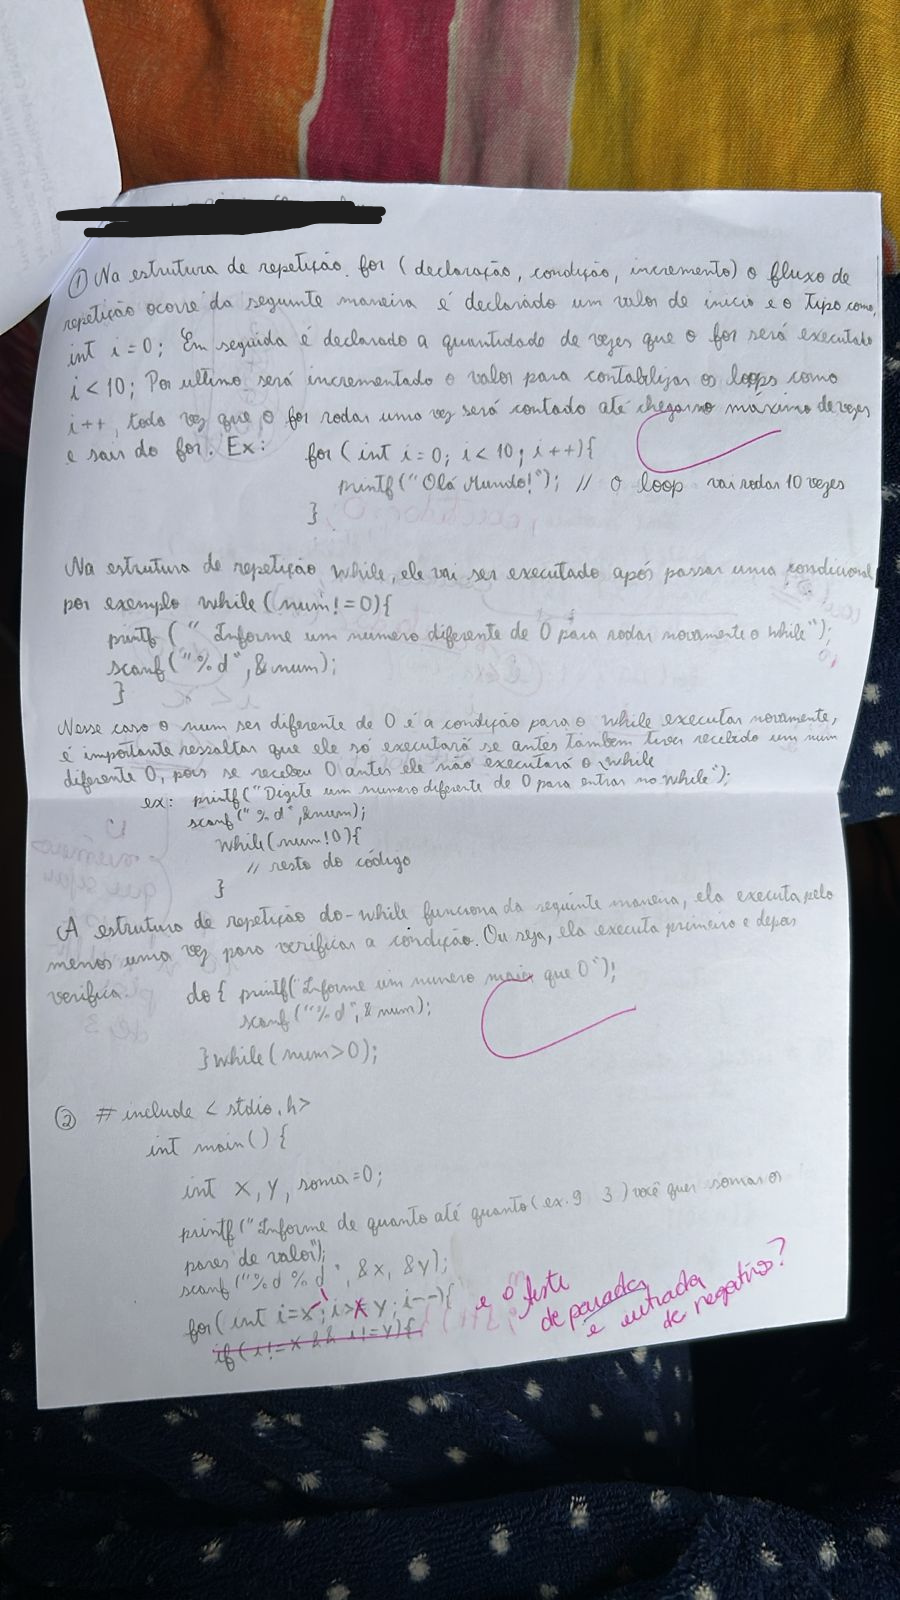 ① Na estrutura de repetição for (declaração, condição, incremento) o fluxo de
repetição ocorre da seguinte maneira é declarado um valor de inicio e o tipo como,
int i = 0; Em seguida é declarado a quantidade de vezes que o for será executado
i < 10; Por ultimo será incrementado o valor para contabilizar os loops como
i++, toda vez que o for rodar uma vez será contado até chegar no máximo de vezes
e sair do for. Ex: for (int i = 0; i < 10; i++){
printf("Olá Mundo!"); // O loop vai rodar 10 vezes
}
Na estrutura de repetição while, ele vai ser executado após passar uma condicional
por exemplo while (num != 0){
printf (" Informe um numero diferente de 0 para rodar novamente o while");
scanf ("%d", &num);
}
Nesse caso o num ser diferente de 0 é a condição para o while executar novamente,
é importante ressaltar que ele só executará se antes também tiver recebido um num
diferente 0, pois se recebeu 0 antes ele não executará o while
ex: printf("Digite um numero diferente de 0 para entrar no while");
scanf("%d", &num);
while(num!0){
// resto do código
}
A estrutura de repetição do-while funciona da seguinte maneira, ela executa pelo
menos uma vez para verificar a condição. Ou seja, ela executa primeiro e depois
verifica. do { printf("Informe um numero maior que 0");
scanf("%d", &num);
} while (num>0);
② # include < stdio.h>
int main() {
int x, y, soma=0;
printf("Informe de quanto até quanto (ex. 9 3) você quer somar os
pares de valor");
scanf ("%d %d", &x, &y);
for (int i=x; i> y; i--){
if (i!=x && i!=y){
e o teste
de parada
e entrada
de negativos?